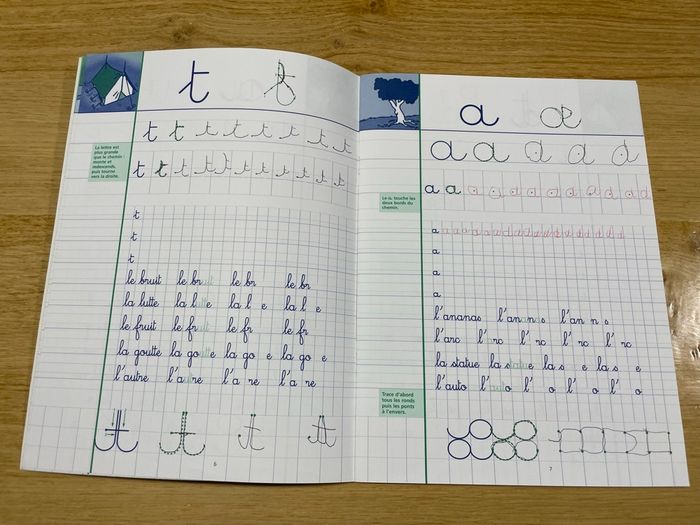 t t
La lettre est
plus grande
que le chemin :
monte et
redescends,
puis tourne
vers la droite.
t t t t t t t t
t t t t t t t t t t
t
t
t
le bruit le bruit le br le br
la lutte la lutte la l e la l e
le fruit le fruit le fr le fr
la goutte la goutte la go e la go e
l'autre l'autre l'a re l'a re
6
a a
a a a a a
Le a touche les
deux bords du
chemin.
a a a a a a a a a a a
a a a a a a a a a a a a a a a a a a a a
a
a
a
l'ananas l'ananas l'an n s
l'arc l' rc l' rc l' rc l' rc
la statue la statue la s e la s e
l'auto l'auto l' o l' o l' o
Trace d'abord
tous les ronds
puis les ponts
à l'envers.
7